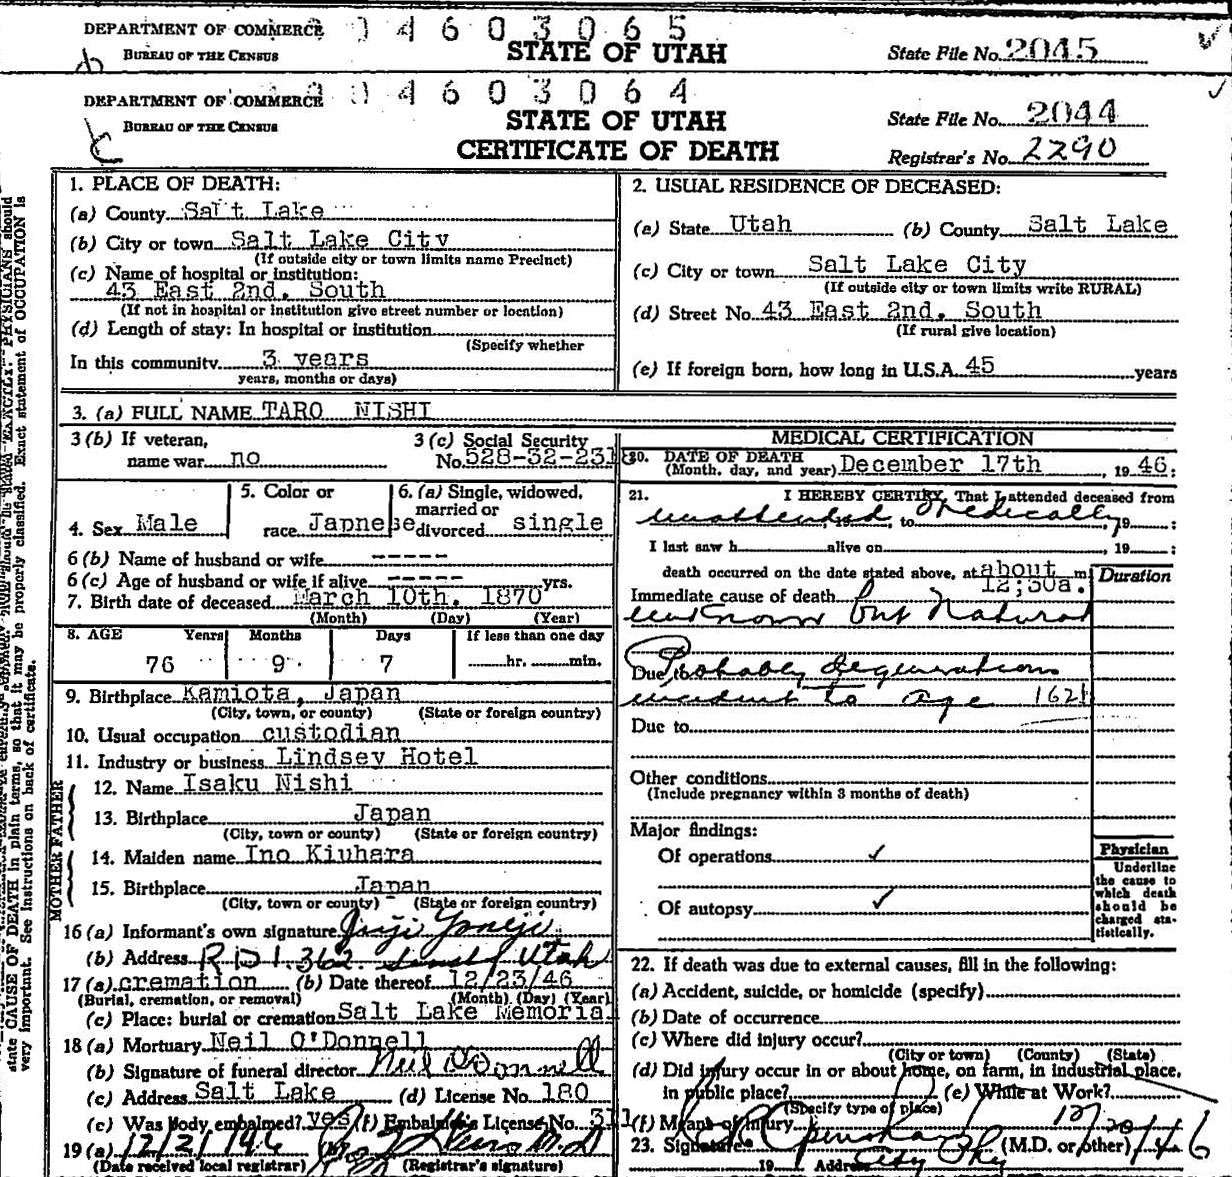 DEPARTMENT OF COMMERCE 04603065
BUREAU OF THE CENSUS STATE OF UTAH State File No. 2045
DEPARTMENT OF COMMERCE 04603064
BUREAU OF THE CENSUS STATE OF UTAH State File No. 2044
CERTIFICATE OF DEATH Registrar's No. 2290
1. PLACE OF DEATH:
(a) County Salt Lake
(b) City or town Salt Lake City
(If outside city or town limits name Precinct)
(c) Name of hospital or institution:
43 East 2nd. South
(If not in hospital or institution give street number or location)
(d) Length of stay: In hospital or institution
(Specify whether
In this community 3 years
years, months or days)
2. USUAL RESIDENCE OF DECEASED:
(a) State Utah (b) County Salt Lake
(c) City or town Salt Lake City
(If outside city or town limits write RURAL)
(d) Street No. 43 East 2nd. South
(If rural give location)
(e) If foreign born, how long in U.S.A. 45 years
3. (a) FULL NAME TARO NISHI
3 (b) If veteran, 3 (c) Social Security
name war no No. 528-32-231
4. Sex Male 5. Color or race Japnese 6. (a) Single, widowed, married or divorced single
6 (b) Name of husband or wife -----
6 (c) Age of husband or wife if alive ----- yrs.
7. Birth date of deceased March 10th. 1870
(Month) (Day) (Year)
8. AGE Years Months Days If less than one day
76 9 7 hr. min.
9. Birthplace Kamiota, Japan
(City, town, or county) (State or foreign country)
10. Usual occupation custodian
11. Industry or business Lindsey Hotel
FATHER
12. Name Isaku Nishi
13. Birthplace Japan
(City, town or county) (State or foreign country)
MOTHER
14. Maiden name Ino Kiuhara
15. Birthplace Japan
(City, town or county) (State or foreign country)
16 (a) Informant's own signature
(b) Address R D 1. 362 Utah
17 (a) cremation (b) Date thereof 12/23/46
(Burial, cremation, or removal) (Month) (Day) (Year)
(c) Place: burial or cremation Salt Lake Memorial
18 (a) Mortuary Neil O'Donnell
(b) Signature of funeral director Neil O'Donnell
(c) Address Salt Lake (d) License No. 180
(e) Was body embalmed? yes (f) Embalmer's License No. 311
19 (a) 12/21/46 (b) M.D.
(Date received local registrar) (Registrar's signature)
MEDICAL CERTIFICATION
20. DATE OF DEATH
(Month, day, and year) December 17th, 1946:
21. I HEREBY CERTIFY, That I attended deceased from
unattended medically, to , 19 :
I last saw h alive on , 19 :
death occurred on the date stated above, at about 12;30a. m
Duration
Immediate cause of death
unknown but Natural
Due to Probably degenerations
incident to age 1621
Due to
Other conditions
(Include pregnancy within 3 months of death)
Major findings:
Of operations ✓
Of autopsy ✓
Physician
Underline
the cause to
which death
should be
charged sta-
tistically.
22. If death was due to external causes, fill in the following:
(a) Accident, suicide, or homicide (specify)
(b) Date of occurrence
(c) Where did injury occur?
(City or town) (County) (State)
(d) Did injury occur in or about home, on farm, in industrial place,
in public place? (e) While at Work?
(Specify type of place)
(f) Means of injury 12/20/46
23. Signature (M.D. or other)
19 Address City Phy
state CAUSE OF DEATH in plain terms, so that it may be properly classified. Exact statement of OCCUPATION is
very important. See instructions on back of certificate.